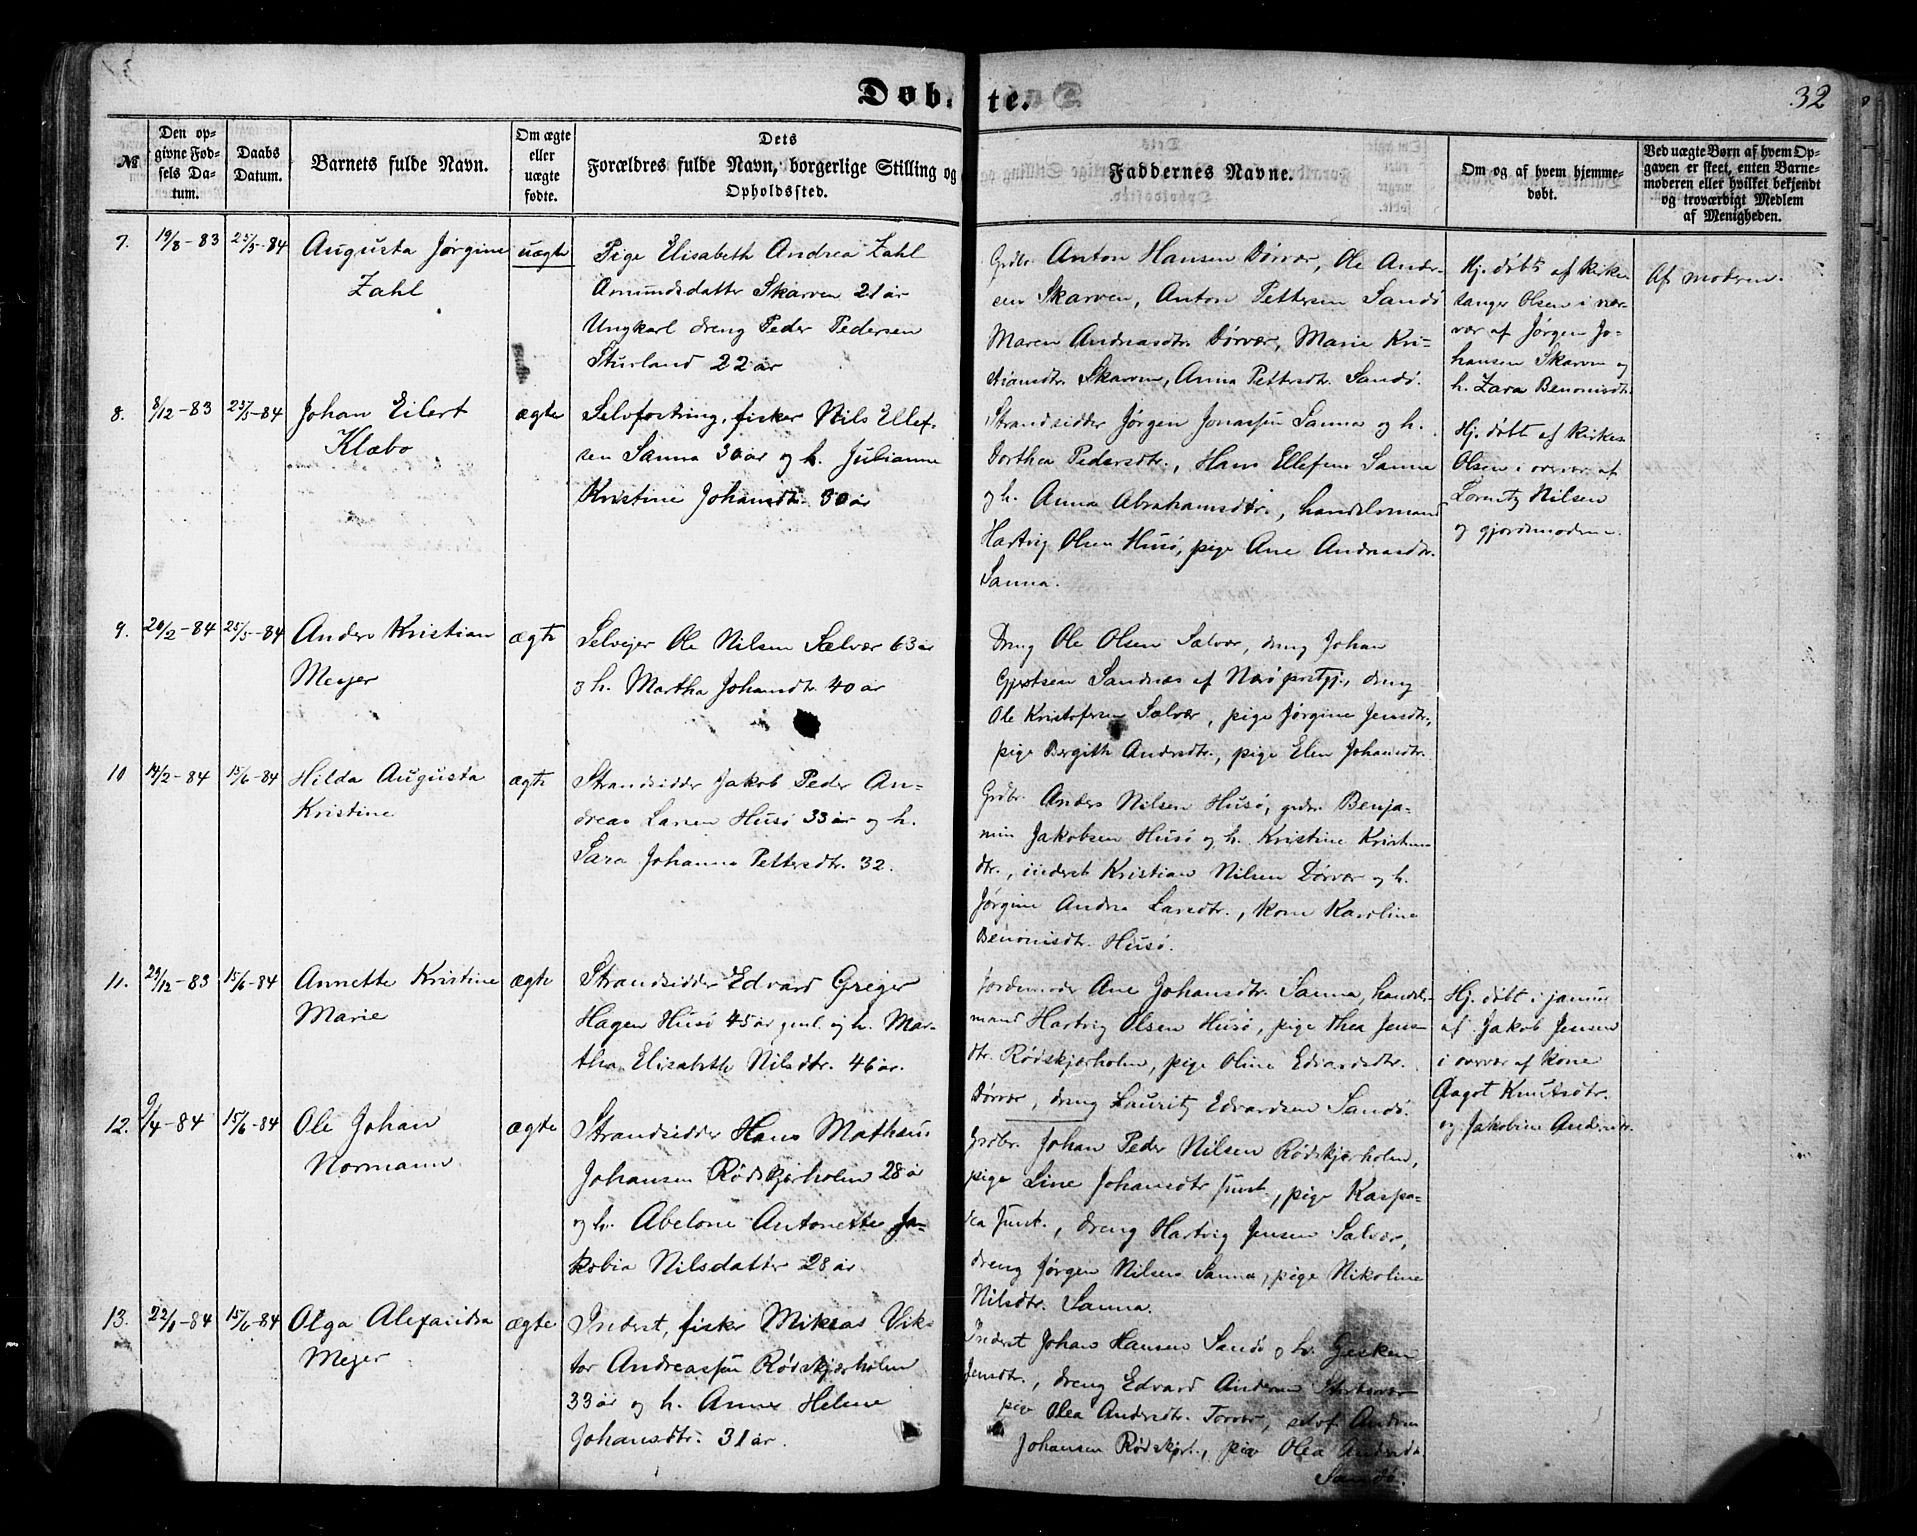 Døbte.
32
№
Den opgivne Fødsels Datum.
Daabs Datum.
Barnets fulde Navn.
Om ægte eller uægte fødte.
Dets Forældres fulde Navn, borgerlige Stilling og Opholdssted.
Faddernes Navne.
Om og af hvem hjemmedøbt.
Ved uægte Børn af hvem Opgaven er skeet, enten Barnemoderen eller hvilket bekjendt og troværdigt Medlem af Menigheden.
7. 19/8-83 25/5-84 Augusta Jørgine
Zahl
uægte
Pige Elisabeth Andrea Zahl
Amundsdatter Skarven 21 år
Ungkarl dreng Peder Pedersen
22 år
Grdbr. Anton Hansen Dørvær, Ole Andersen Skarven, Anton Pettersen Sandø
Maren Andreasdtr. Dørvær, Marie Kristiansdtr. Skarven, Anna Pettersdtr. Sandø.
Hj. døbt af kirke-
sanger Olsen i nær-
vær af Jørgen Jo-
hansen Skarven og
h. Zara Benonisdtr.
Af moderen.
8. 8/12-83 25/5-84 Johan Eilert
Klæbo
ægte
fisker Nils Ellef-
sen Sanna 30 år og h. Julianne
Kristine Johansdtr. 30 år
Strandsidder Jørgen Jonassen Sanna og h.
Dorthea Pedersdtr., Hans Ellefsen Sanna
og h. Anna Abrahamsdtr., handelsmand
Hartvig Olsen Husø, pige Ane Andreasdtr.
Sanna.
Hj. døbt af kirkes.
Olsen i overvær af
Lorentz Nilsen
og gjordemoderen.
9. 20/2-84 25/5-84 Anders Kristian
Meyer
ægte
Selvejer Ole Nilsen Selvær 63 år
o h. Martha Johansdtr. 40 år
Dreng Ole Olsen Selvær, dreng Johan
Gjertsen Sandnæs af Nesø prstgj., dreng
Ole Kristofersen Selvær, pige Jørgine Jensdtr.,
pige Bergith Andersdtr., pige Elen Johansdtr.
10 14/2-84 15/6-84 Hilda Augusta
Kristine
ægte
Strandsidder Jakob Peder An-
dreas Larsen Husø 33 år og h.
Sara Johanna Pettersdtr. 32.
Grdbr. Anders Nilsen Husø, grdbr. Benja-
min Jakobsen Husø og h. Kristine Kristens
dtr., inderst Kristian Nilsen Dørvær og h.
Jørgine Andrea Larsdtr., kone Karoline
Benonisdtr. Husø.
11. 29/12-83 15/6-84 Annette Kristine
Marie
ægte
Strandsidder Edvard Greger
Hagen Husø 45 år gml. og h. Mar-
tha Elisabeth Nilsdtr. 46 år.
Jordemoder Ane Johansdtr. Sanna, handels-
mand Hartvig Olsen Husø, pige Thea Jens-
dtr. Rødskjærholm, pige Oline Edvardsdtr.
Dørvær, dreng Lauritz Edvardsen Sandø.
Hj. døbt i januar
af Jakob Jensen
i overvær af kone
Aagot Knutsdtr.
og Jakobine Andersdtr.
12. 9/4-84 15/6-84 Ole Johan
Normann
ægte
Strandsidder Hans Mathæus
Johansen Rødskjærholm 28 år
og h. Abelone Antonette Ja-
kobia Nilsdatter 28 år.
Grdbr. Johan Peder Nilsen Rødskjærholm,
pige Line Johansdtr. smst., pige Kaspa-
ra smst., dreng Hartvig Jensen Selvær,
dreng Jørgen Nilsen Sanna, pige Nikoline
Nilsdtr. Sanna.
13. 22/1-84 15/6-84 Olga Alexandra
Mejer
ægte
Inderst, fisker Mikras Vik-
tor Andreassen Rødskjærholm
33 år og h. Anne Helene
Johansdtr. 31 år.
Inderst Johan Hansen Sandø og h. Gesken
Jensdtr., dreng Edvard Andersen
pige Olea Andersdtr. Torvær, selvf. Anders
Johansen Rødskjær., pige Olea Andersdtr.
Sandø.